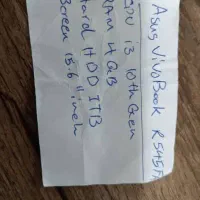 Asus VivoBook R545F
CPU i3 10th Gen
RAM 4GB
Hard HDD 1TB
Screen 15.6" inch